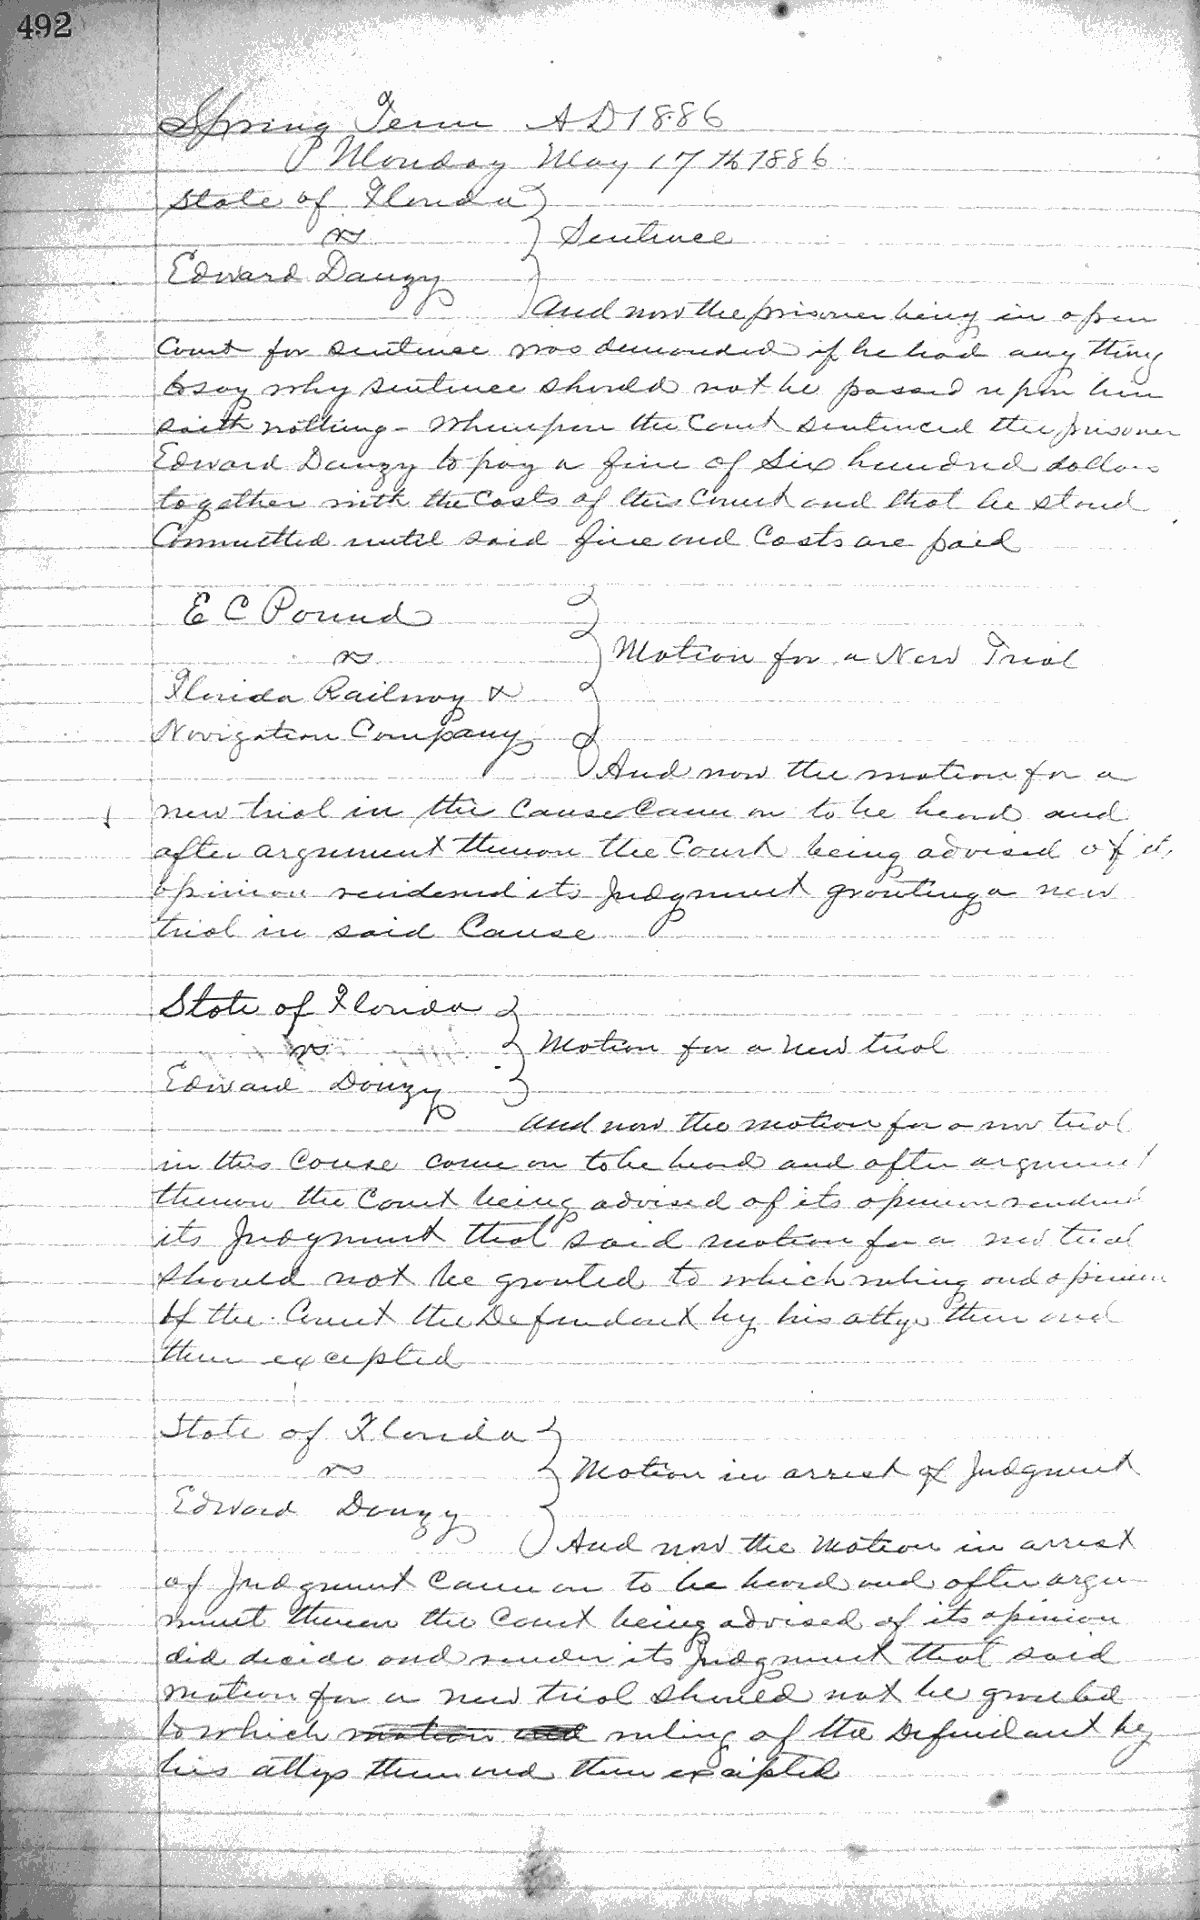 492
Spring Term AD 1886
Monday May 17th 1886
State of Florida
vs
Sentence
Edward Dauzy
And now the prisoner being in open
Court for sentense was demanded if he had any thing
to say why sentence should not be passed upon him
saith nothing - Whereupon the Court sentenced the prisoner
Edward Dauzy to pay a fine of Six hundred dollars
together with the Costs of this Court and that he stand
Committed until said fine and Costs are paid
E C Pound
vs
Motion for a New Trial
Florida Railway &
Navigation Company
And now the motion for a
new trial in this Cause Came on to be heard and
after argument thereon the Court being advised of its
opinion rendered its Judgment granting a new
trial in said Cause
State of Florida
vs
Motion for a new trial
Edward Douzy
And now the motion for a new trial
in this Couse came on to be heard and after argument
thereon the Court being advised of its opinion rendered
its Judgment that said motion for a new trial
should not be granted to which ruling and opinion
of the Court the Defendant by his attys then and
there excepted
State of Florida
vs
Motion in arrest of Judgment
Edward Douzy
And now the Motion in arrest
of Judgment Came on to be heard and after argu
ment thereon the Court being advised of its opinion
did decide and render its Judgment that said
motion for a new trial should not be granted
to which motion and ruling of the Defendant by
his attys then and there excepted